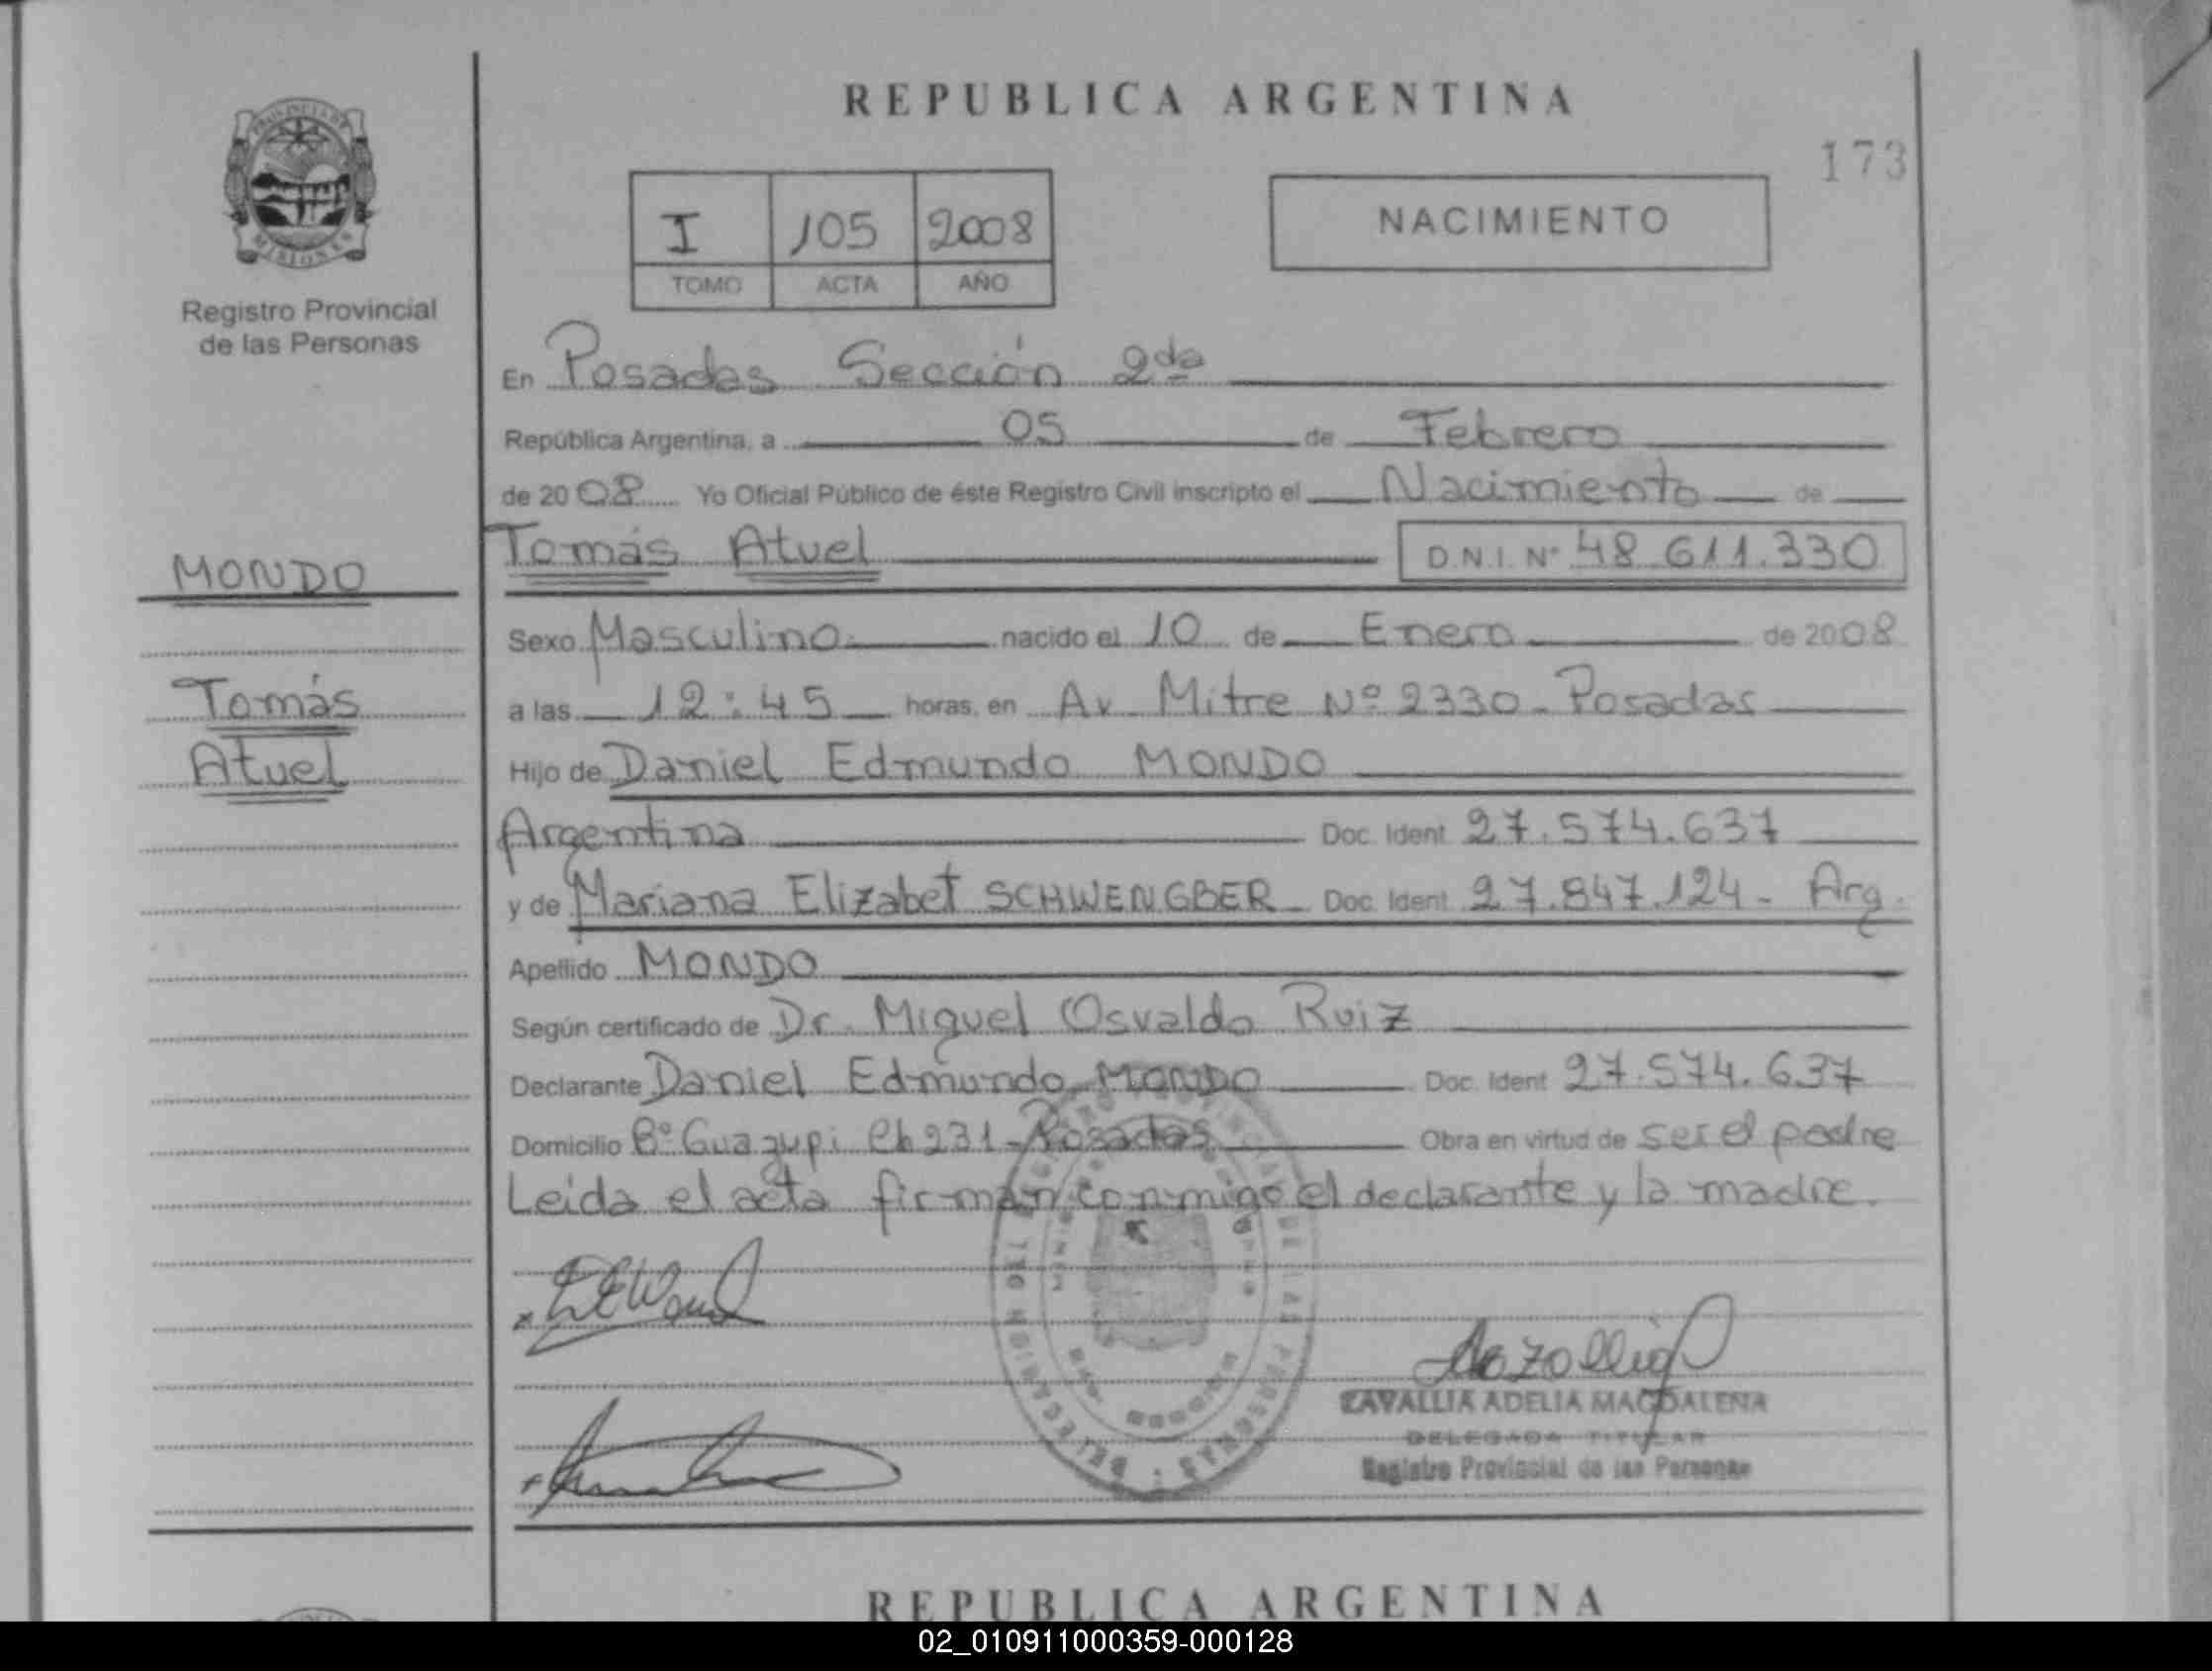 REPUBLICA ARGENTINA
173
PROVINCIA DE
MISIONES
Registro Provincial
de las Personas
I 105 2008
TOMO ACTA AÑO
NACIMIENTO
En Posadas Sección 2da
República Argentina, a 05 de Febrero
de 2008 Yo Oficial Público de éste Registro Civil inscripto el Nacimiento de
Tomás Atuel D.N.I. Nº 48.611.330
MONDO
Tomás
Atuel
Sexo Masculino nacido el 10 de Enero de 2008
a las 12:45 horas, en Av Mitre Nº 2330 - Posadas
Hijo de Daniel Edmundo MONDO
Argentina Doc. Ident 27.574.637
y de Mariana Elizabet SCHWENGBER - Doc. Ident 27.847.124 - Arg.
Apellido MONDO
Según certificado de Dr. Miguel Osvaldo Ruiz
Declarante Daniel Edmundo MONDO Doc. Ident 27.574.637
Domicilio Bº Guazupi Ch 231 - Posadas Obra en virtud de ser el padre
Leida el acta firman conmigo el declarante y la madre.
ZAVALLIA ADELIA MAGDALENA
DELEGADA TITULAR
Registro Provincial de las Personas
REPUBLICA ARGENTINA
02_010911000359-000128